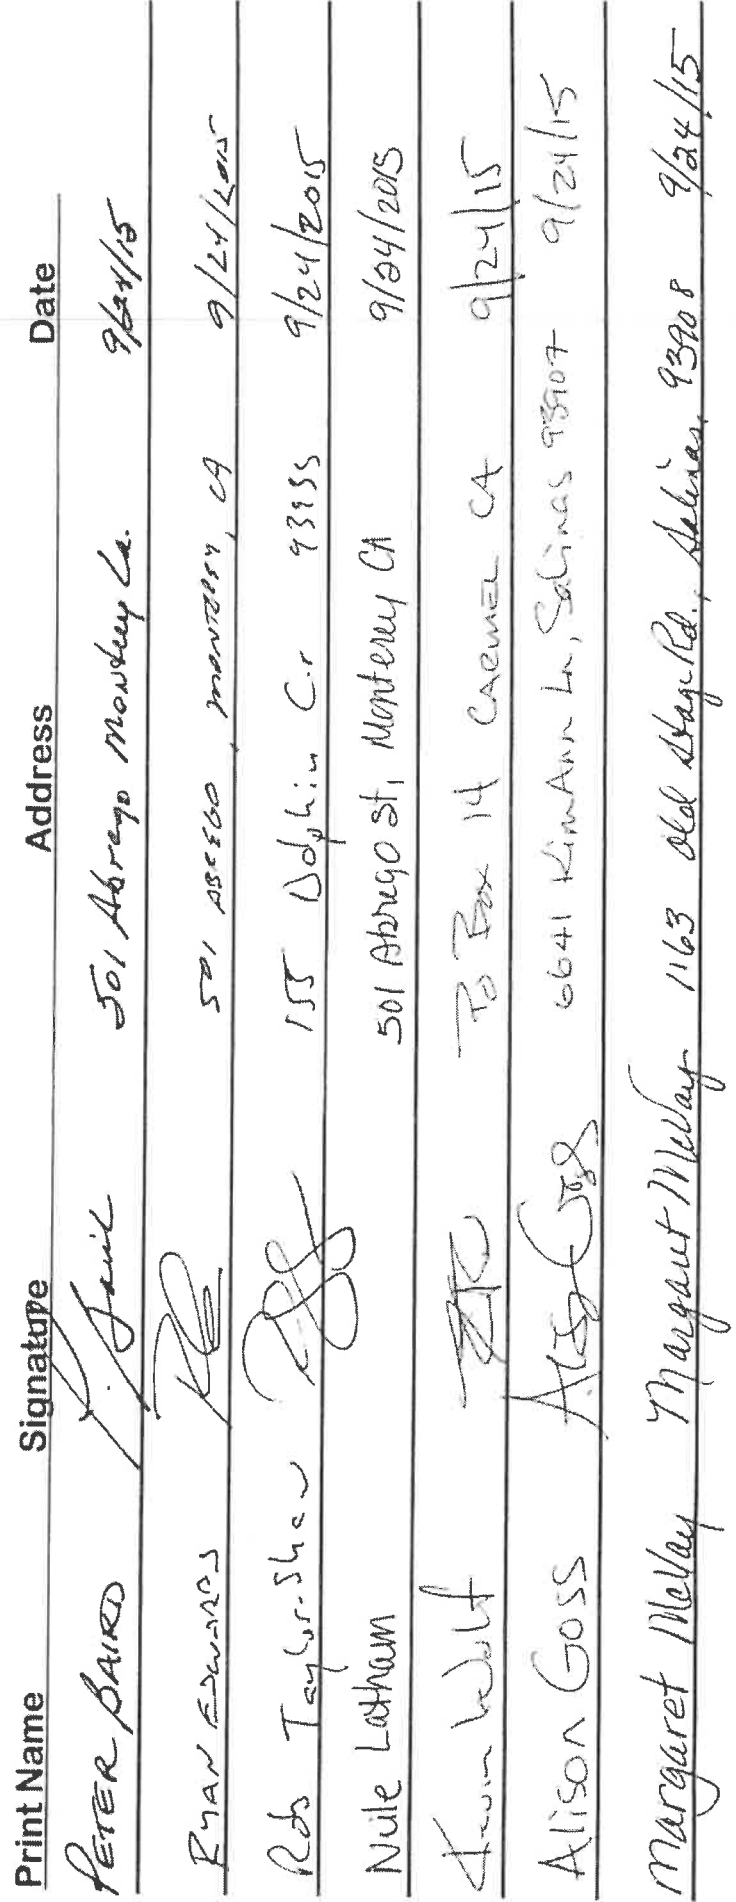 Print Name Signature Address Date
PETER BAIRD P. Baird 501 Abrego Monterey Ca. 9/24/15
RYAN EDWARDS 501 ABREGO, MONTEREY, CA 9/24/2015
Rob Taylor-Shaw 155 Dolphin Cir 93955 9/24/2015
Latham 501 Abrego St, Monterey CA 9/24/2015
Kevin Wolf PO Box 14 CARMEL CA 9/24/15
Alison Goss 6641 Kim Ann Ln, Salinas 93907 9/24/15
Margaret McVay Margaret McVay 1163 Old Stage Rd., Salinas, 93908 9/24/15